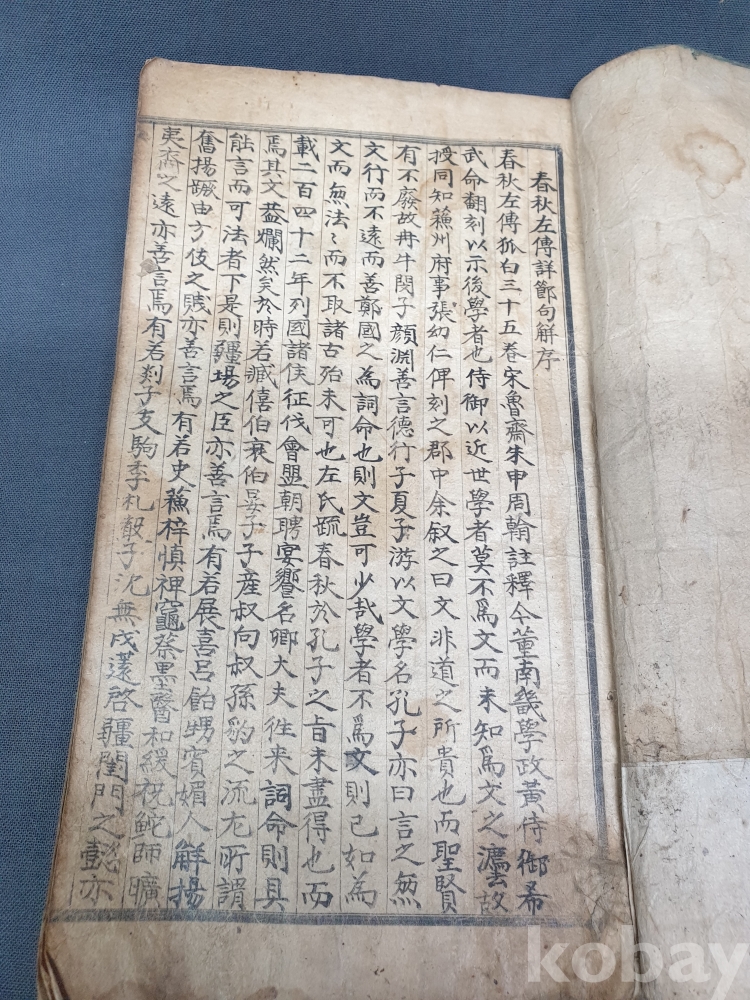 春秋左傳詳節句觧序
春秋左傳狐白三十五卷宋魯齋朱申周翰註釋今董南畿學政黃侍御希
武命翻刻以示後學者也侍御以近世學者莫不爲文而未知爲文之灋故
授同知蘓州府事張幼仁俾刻之郡中余叙之曰文非道之所貴也而聖賢
有不廢故冉牛閔子顔淵善言德行子夏子游以文學名孔子亦曰言之無
文行而不遠而善鄭國之為詞命也則文豈可少哉學者不爲文則已如為
文而無法〻而不取諸古殆未可也左氏疏春秋於孔子之旨未盡得也而
載二百四十二年列國諸侯征伐會盟朝聘宴饗名卿大夫徃来詞命則具
焉其文葢爛然矣於時若臧僖伯哀伯晏子子產叔向叔孫豹之流尤所謂
能言而可法者下是則疆場之臣亦善言焉有若展喜呂飴甥賓媚人觧揚
奮揚蹶由方伎之賤亦善言焉有若史蘓梓慎裨竈蔡墨醫和緩祝鮀師曠
夷裔之遠亦善言焉有若剡子支駒季札聲子沈無戍薳啓疆閨門之懿亦
kobay